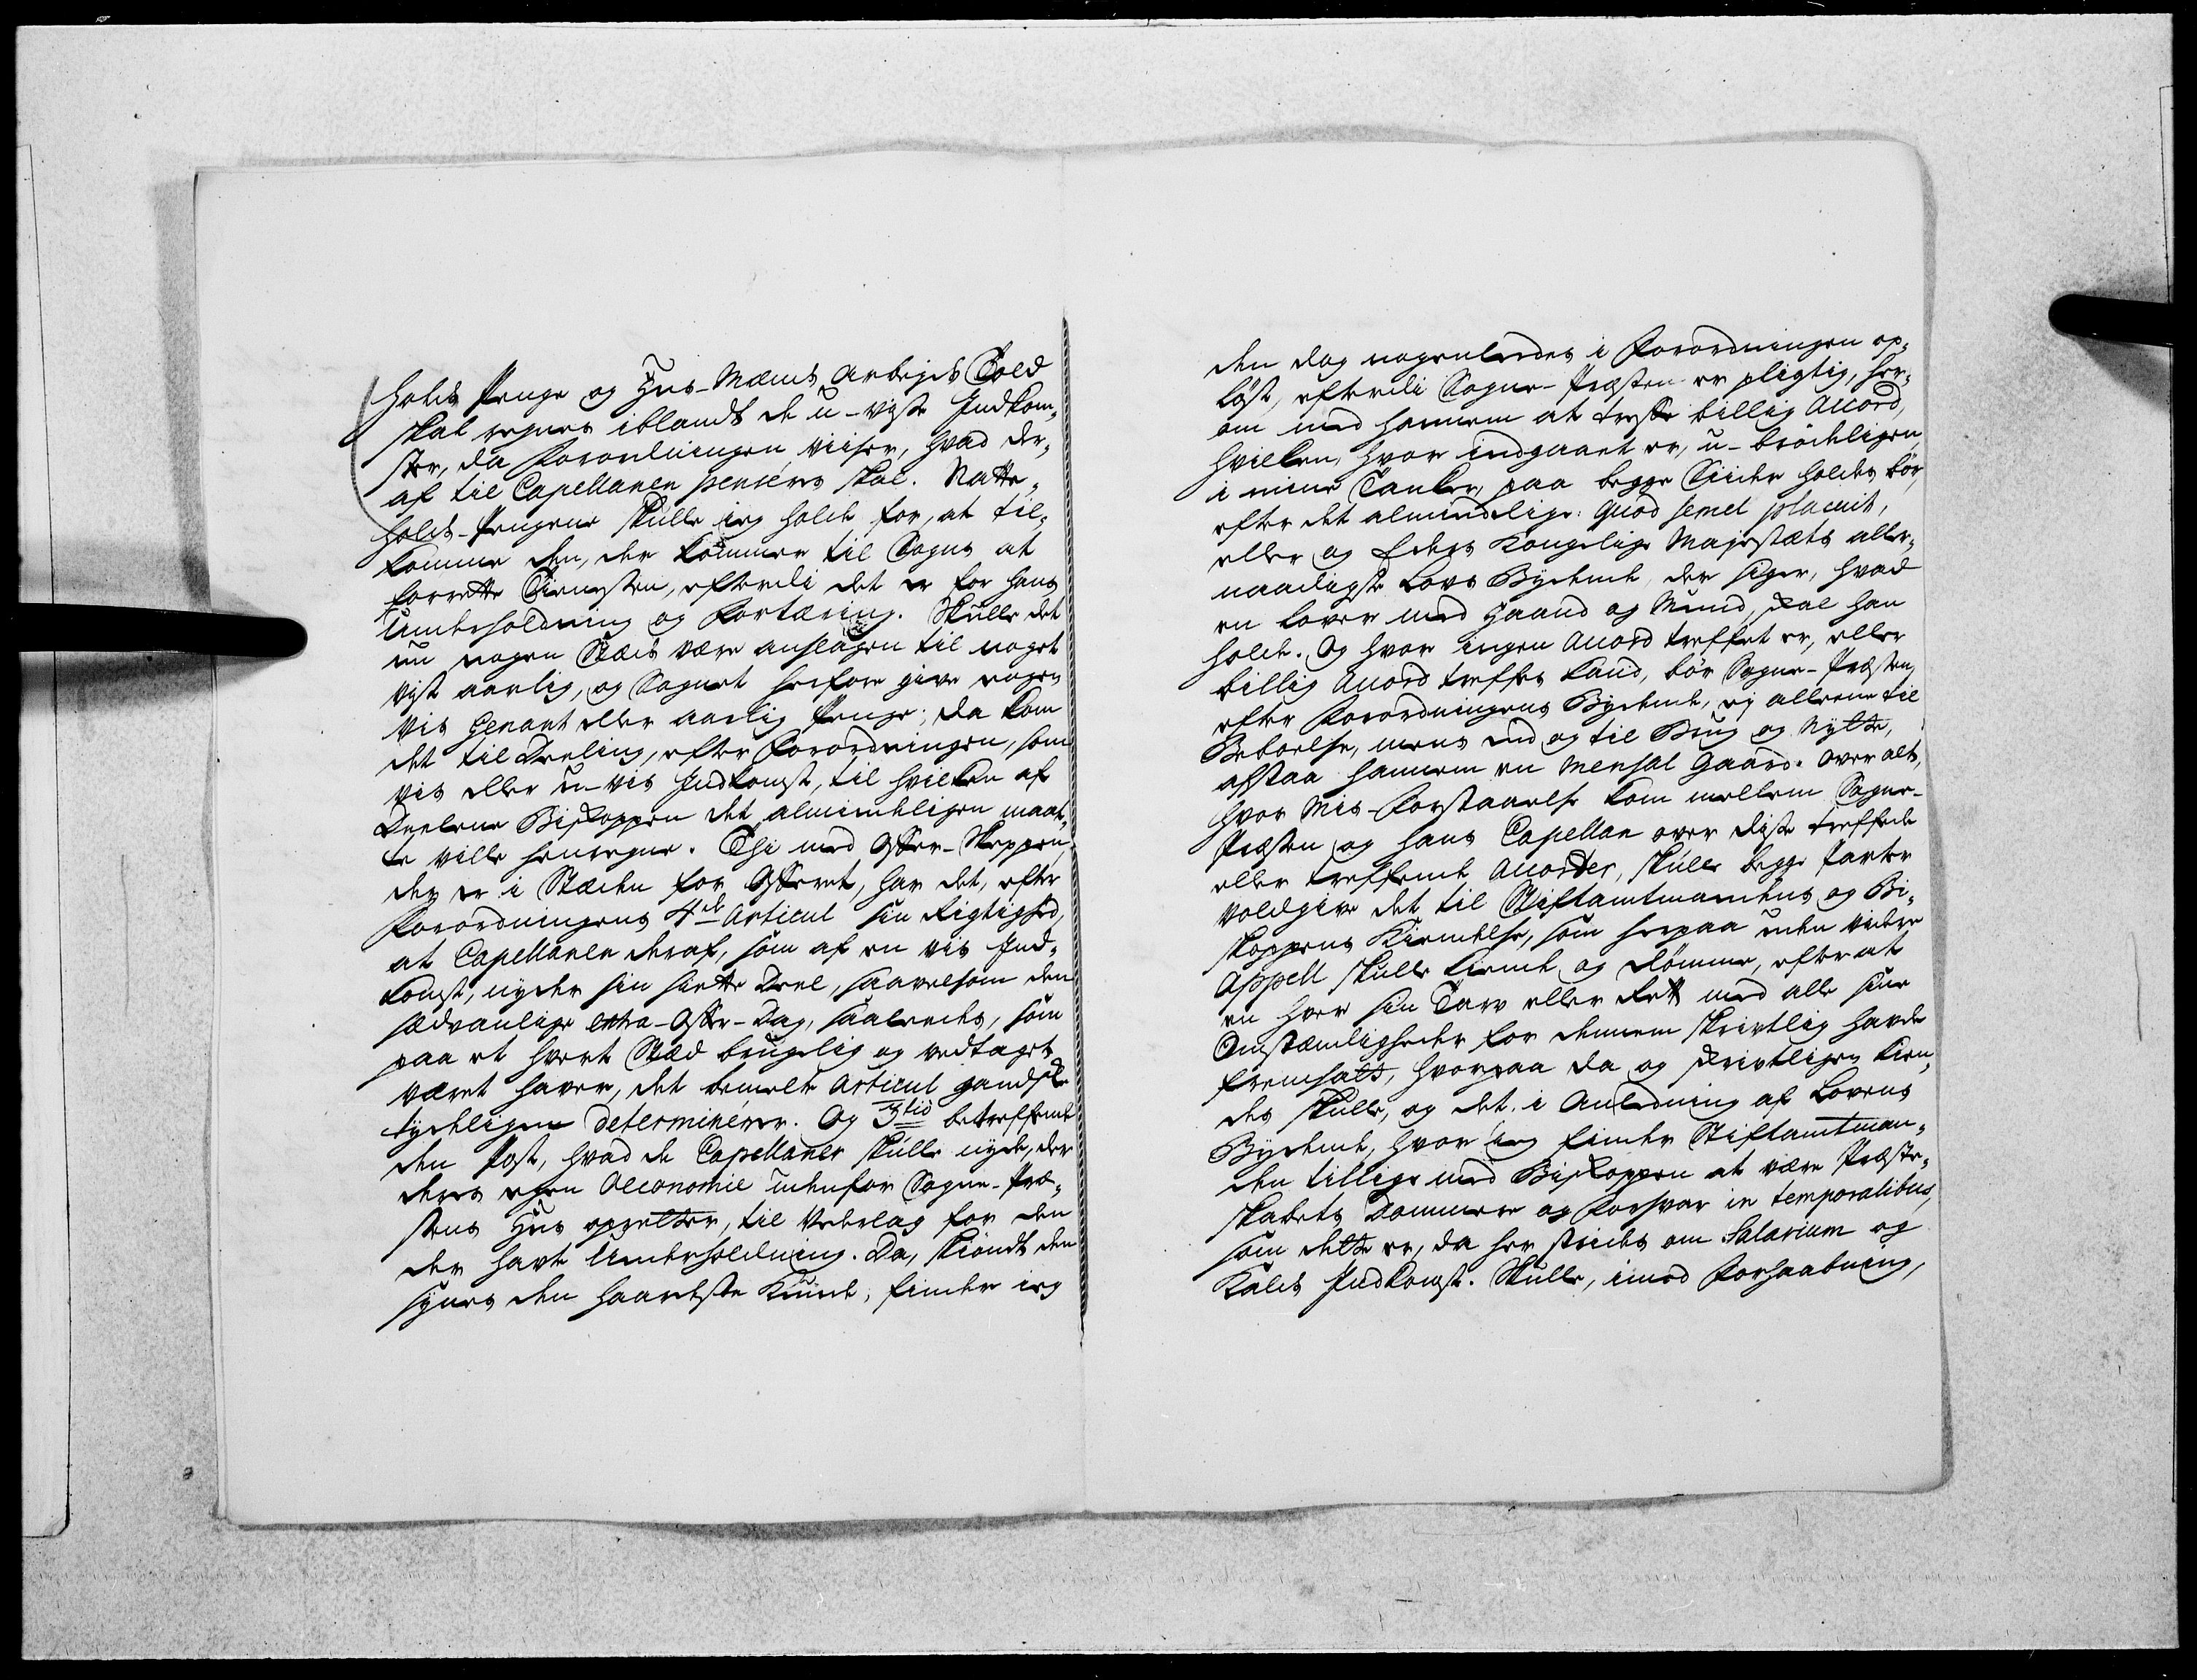 holds Penge og Huus-Mænds Arbejds Told
skal regnes iblandt de u-viste Indkom-
ster, da Forordningen viiser, hvad der-
af til Capellanen penséres skal. Natte-
holds-Pengene skulle jeg holde for, at til-
komme den, der kommer til Sogns at
forrette Tienesten, efterdi det er for hans
Underholdning og Fortæring. Skulle det
nu nogen Stæds være anslagen til noget
vist aarlig, og Sognet herfore give nogen
vis Genant eller aarlig Penge; da kom
det til Deeling, efter Forordningen, som
vis eller u-vis Indkomst, til hvilken af
Deelene Biskoppen det almindeligen maat-
te ville henregne. Thi med Offer-Skeppen,
der er i Stæden for Offeret, har det, efter
Forordningens 4de Articul sin Rigtighed,
at Capellanen deraf, som af en vis Ind-
komst, nyder sin siette Deel, saavelsom den
sædvanlige extra-Offer-Dag, saaledes, som
paa et hvert Stæd brugelig og vedtaget
været haver, det bemelte Articul gandske
tydeligen determinérer. Og 3tio betreffende
den Post, hvad de Capellaner skulle nyde, der
deres egen Oeconomie udenfor Sogne-Præ-
stens Huus opretter, til Vederlag for den
der havte Underholdning. Da, skiöndt den
synes den haardeste Knude, finder jeg
den dog nogenledes i Forordningen op-
löst, efterdi Sogne-Præsten er pligtig, her-
om med hannem at treffe billig Accord,
hvilken, hvor indgaaet er, u-brödeligen,
i mine Tanker, paa begge Siider holdes bör,
efter det almindelige: Quod semel placuit,
eller og Eders Kongelige Majestæts aller-
naadigste Lovs Bydende, der siger, hvad
en lover med Haand og Mund, skal han
holde. Og hvor ingen Accord treffet er, eller
billig Accord treffes kand, bör Sogne-Præsten,
efter Forordningens Bydende, ej alleene til
Beboelse, mens end og til Brug og Nytte,
afstaa hannem en Mensal Gaard. Over alt,
hvor Mis-Forstaaelse kom mellem Sogne-
Præsten og hans Capellan over disse treffede
eller treffende Accorder, skulle begge Parter
voldgive det til Stiftamtmandens og Bi-
skoppens Kiendelse, som herpaa uden videre
Appell skulle kiende og dömme, efter at
en hver sin Tarv eller Rett med alle sine
Omstændigheder for dennem skrivtlig havde
fremsatt, hvorpaa da og skrivtligen kien-
des skulle, og det i Anledning af Lovens
Bydende, hvor jeg finder Stiftamtman-
den tillige med Biskoppen at være Præste-
skabets Dommere og Forsvar in temporalibus,
som dette er, da her striides om Salarium og
Kalds Indkomst. Skulle, imod Forhaabning,